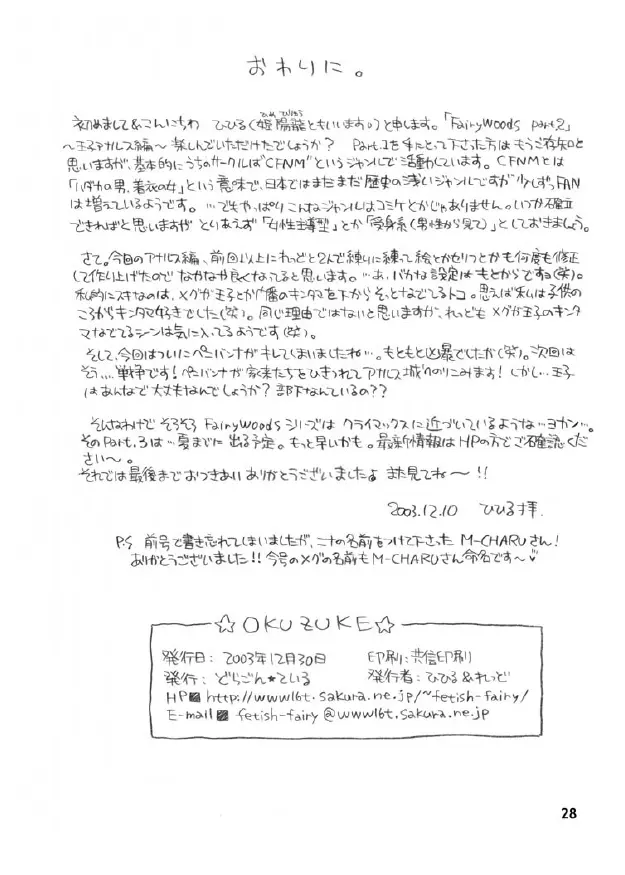 おわりに。
初めまして&こんにちわ ひひる(姫陽龍ともいいます。)と申します。「FairyWoods part2」
～王子アカルス編～ 楽しんでいただけたでしょうか? Part.1を手にとって下さった方はもうご存知と
思いますが、基本的にうちのサークルは"CFNM"というジャンルで活動しています。CFNMとは
「ハダカの男、着衣の女」という意味で、日本ではまだまだ歴史の浅いジャンルですが少しずつFAN
は増えているようです。…でもやっぱりこんなジャンルはコミケとかじゃありません。いつか確立
できればと思いますが とりあえず「女性主導型」とか「受身系(男性から見て)」としておきましょう。
さて。今回のアカルス編、前回以上にれっどと2人で練りに練って絵とかセリフとかも何度も修正
して作り上げたので なかなか良くなってると思います。…あ、バカな設定はもとからですョ(笑)。
私的にスキなのは、メグが王子とかのキンタマを下からそっとなでてるトコ。思えば私は子供の
ころからキンタマ好きでした(笑)。同じ理由ではないと思いますが、れっどもメグが王子のキンタ
マなでてるシーンは気に入ってるようです(笑)。
そして、今回はついにペニバンナがキレてしまいましたね…。もともと凶暴でしたか(笑)。次回は
そう…、戦争です! ペニバンナが家来たちをひきつれてアカルス城へのりこみます! しかし…王子
はあんなで大丈夫なんでしょうか? 部下なんているの??
そんなわけで そろそろ FairyWoods シリーズは クライマックスに近づいているような…ヨカン…。
そのPart.3は…夏までに出る予定。もっと早いかも。最新情報はHPの方でご確認くだ
さい～。
それでは最後までおつきあいありがとうございましたよ また見てね～!!
2003.12.10 ひひる拝.
P.S 前号で書き忘れてしまいましたが、ニナの名前をつけて下さった M-CHARUさん!
ありがとうございました!! 今号のメグの名前も M-CHARUさん命名です～♥
☆OKUZUKE☆
発行日: 2003年12月30日 印刷:共信印刷
発行: どらごん★ている 発行者: ひひる&れっど
HP http://www16t.sakura.ne.jp/~fetish-fairy/
E-mail fetish-fairy@www16t.sakura.ne.jp
28